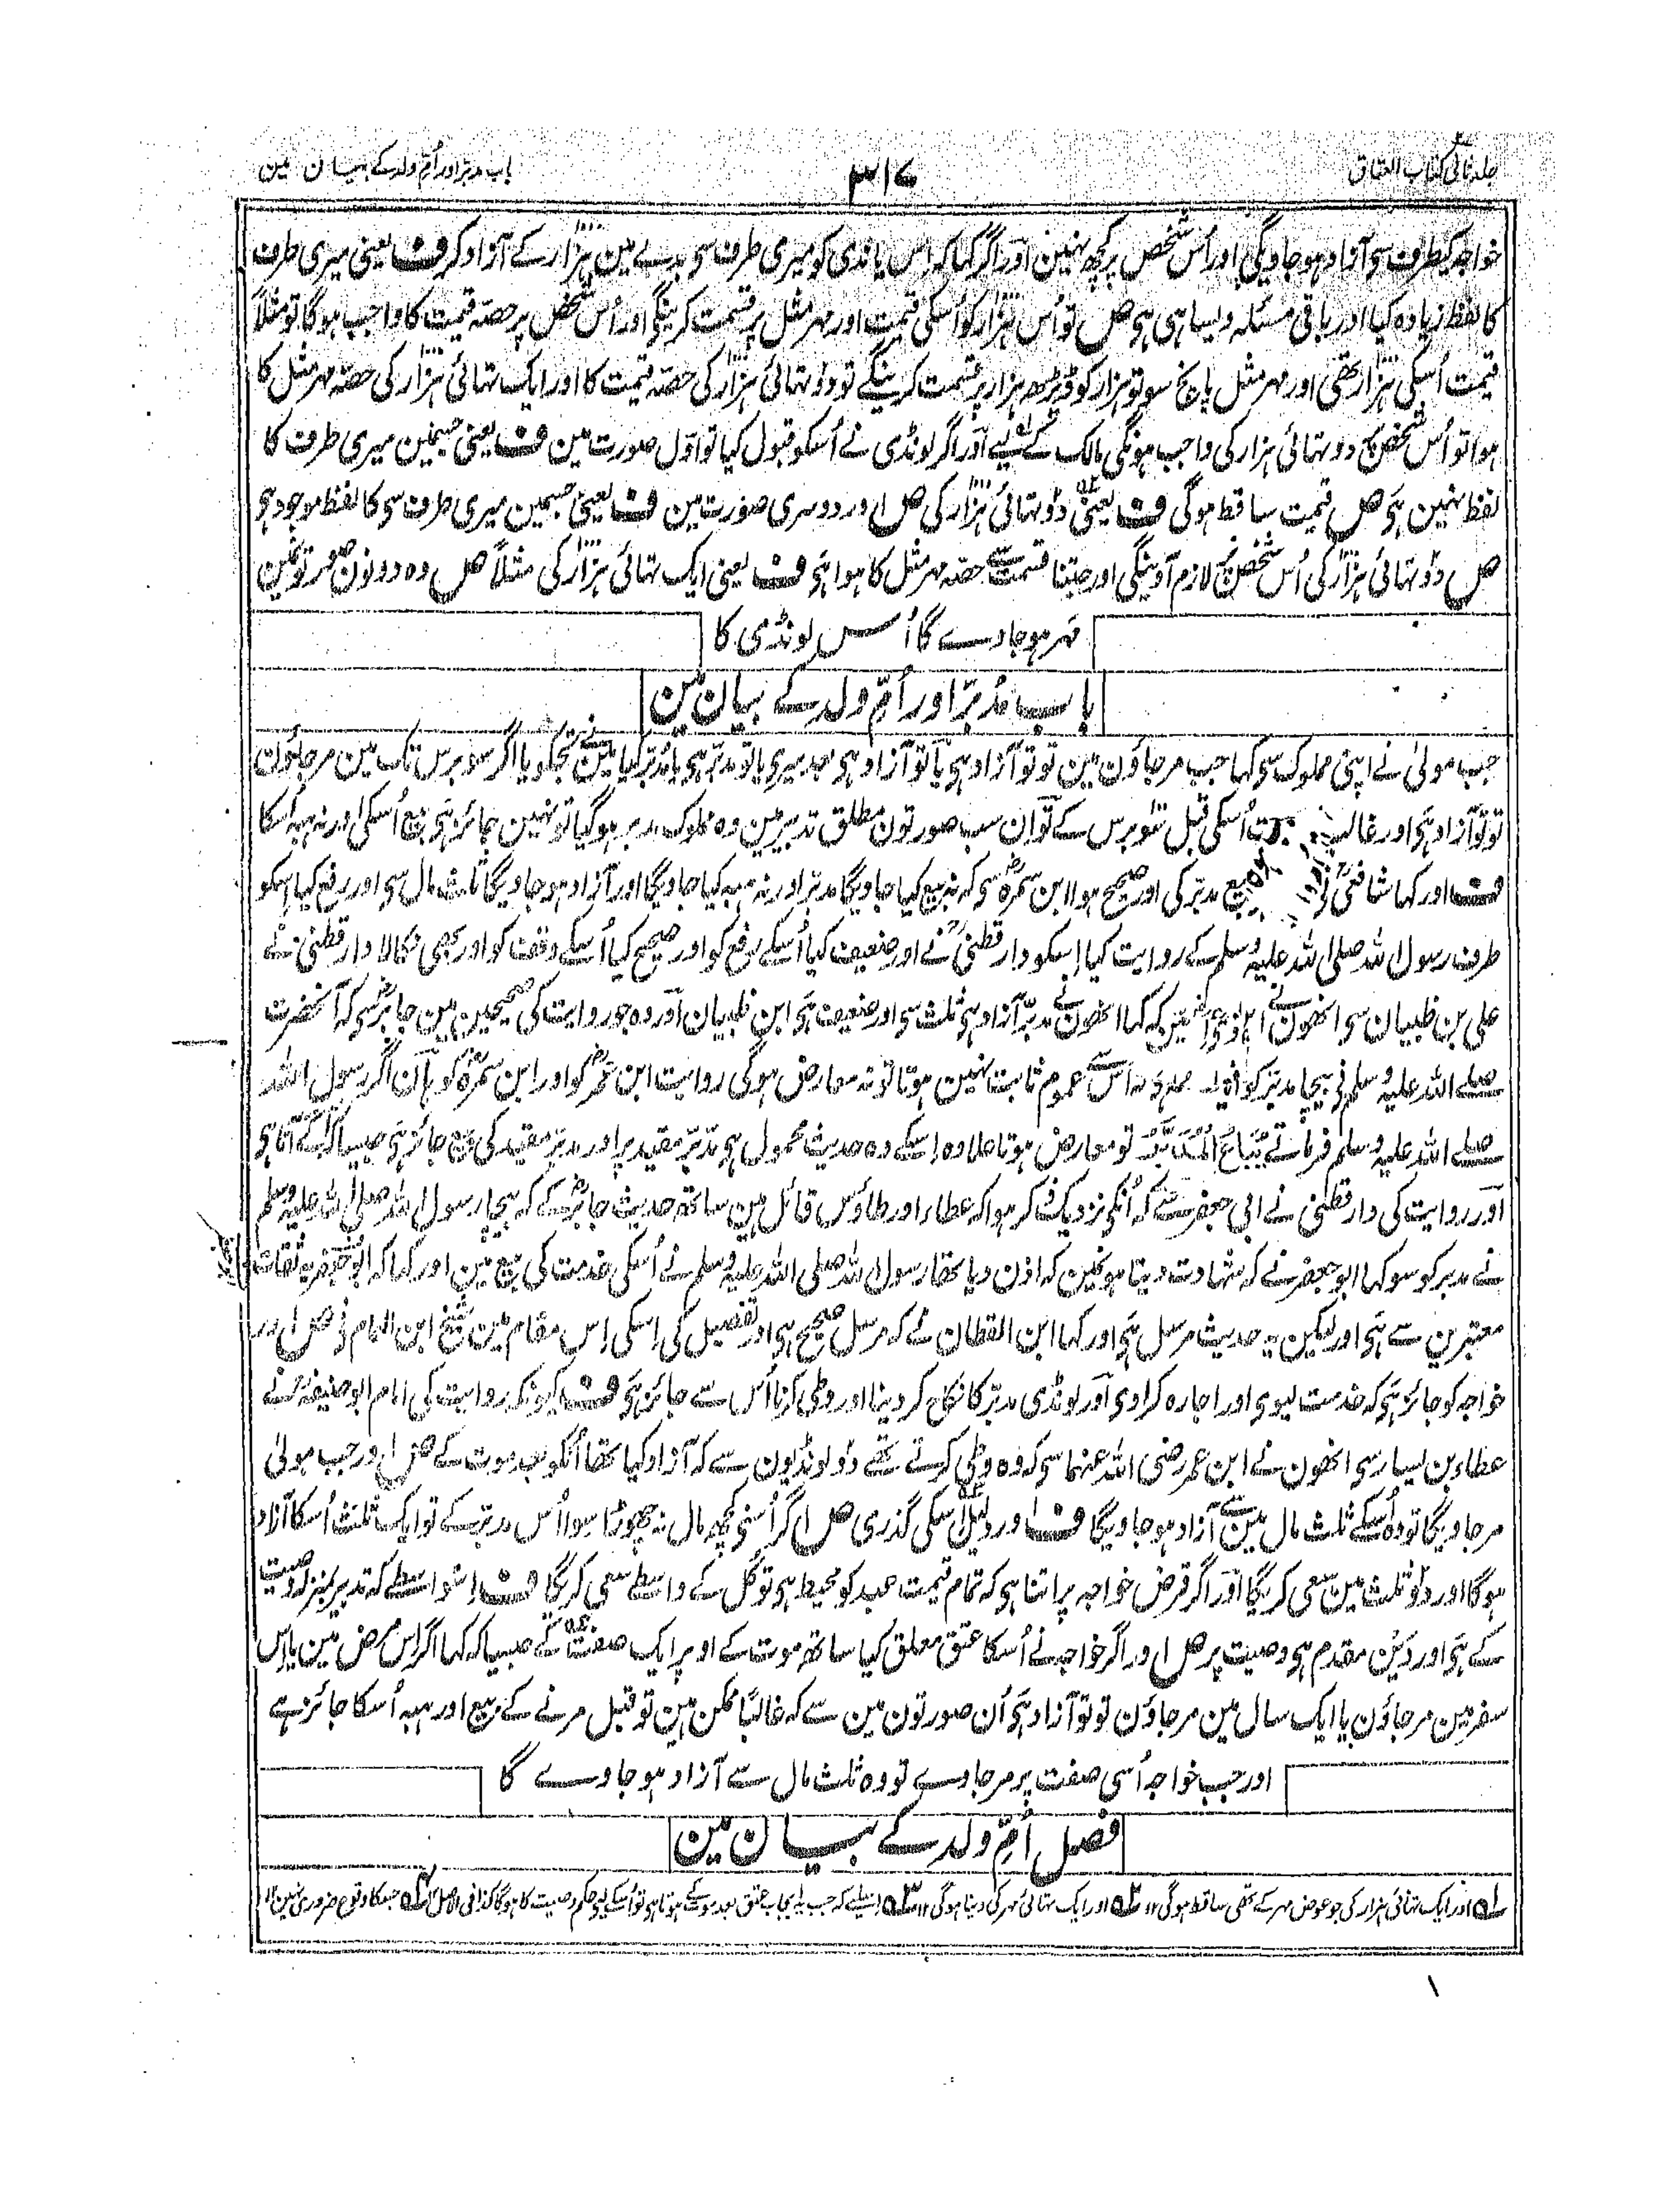 جلد ثانی کتاب العتاق
۳۱۷
باب مدبر اور اُمّ ولد کے بیان مین
خواجہ کیطرف سی آزاد ہو جاویگی اور اُس شخص پر کچھ نہین اور اگر کہا کہ اِس باندی کو میری طرف سی بدلے مین ہزار کے آزاد کر ف یعنی میری طرف
کا لفظ زیادہ کیا اور باقی مسئلہ ویسا ہی ہی ص تو اُس ہزار کو اُسکی قیمت اور مہر مثل پر قسمت کرینگے اور اُس شخص پر حصّہ قیمت کا واجب ہوگا تو مثلاً
قیمت اُسکی ہزار تھی اور مہر مثل پانچ سو تو ہزار کو ڈیڑھ ہزار پر قسمت کرینگے تو دو تہائی ہزار کی حصّہ قیمت کا اور ایک تہائی ہزار کی حصّہ مہر مثل کا
ہوا تو اُس شخص پر دو تہائی ہزار کی واجب ہونگی مالک کے لیے اور اگر لونڈی نے اُسکو قبول کیا تو اوّل صورت مین ف یعنی جسمین میری طرف کا
لفظ نہین ہی ص قیمت ساقط ہوگی ف یعنی دو تہائی ہزار کی ص اور دوسری صورت مین ف یعنی جسمین میری طرف سی کا لفظ موجود ہی
ص دو تہائی ہزار کی اُس شخص پر لازم آوینگی اور جتنا قسمت سے حصّہ مہر مثل کا ہوا ہی ف یعنی ایک تہائی ہزار کی مثلاً ص وہ دونون صورتونمین
مہر ہو جاوے گا اُس لونڈی کا
باب مُدبَّر اور اُمّ ولد کے بیان مین
جب مولیٰ نے اپنی مملوک سی کہا جب مر جاؤن مین تو تو آزاد ہی یا تو آزاد ہی بعد میری یا تو مدبّر ہی یا مُدبّر کیا مین نے تجکو یا اگر سو برس تک مین مر جاؤن
تو تو آزاد ہی اور غالب موت اُسکی قبل سو برس کے تو ان سب صورتون مطلق تدبیر مین وہ مملوک مدبر ہو گیا تو نہین جائز ہی بیع اُسکی اور نہ ہبہ اُسکا
ف اور کہا شافعیؒ نے بیع مدبّر کی اور صحیح ہوا ابن سمرہؓ سی کہ نہ بیع کیا جاویگا مدبّر اور نہ ہبہ کیا جاویگا اور آزاد ہو جاویگا ثلث مال سی اور رفع کیا اِسکو
طرف رسول اللہ صلی اللہ علیہ وسلم کے روایت کیا اِسکو دارقطنیؒ نے اور ضعیف کیا اُسکے رفع کو اور صحیح کیا اُسکے وقف کو اور بھی نکالا دارقطنی نے
علی بن ظبیان سی انھون نے کہ کہا انھون نے مدبّر آزاد ہی ثلث سی اور ضعیف ہی ابن ظبیان اور وہ جو روایت کی صحیحین مین جابرؓ سی کہ آنحضرت
صلے اللہ علیہ وسلم نی بیچا مدبّر کو عموم ثابت نہین ہوتا تو نہ معارض ہوگی روایت ابن عمرؓ کو اور ابن سمرہؓ کو ہان اگر رسول اللہ
صلے اللہ علیہ وسلم فرماتے یُبَاعُ الْمُدَبَّرُ تو معارض ہوتا علاوہ اِسکے وہ حدیث محمول ہی مدبّر مقید پر اور مدبّر مقید کی بیع جائز ہی جیسا کہ آگے آتا ہی
اور روایت کی دارقطنی نے ابی جعفر سے کہ اُنکی نزدیک ذکر ہوا کہ عطاء اور طاؤس قائل ہین ساتھ حدیث جابرؓ کے کہ بیچا رسول اللہ صلی اللہ علیہ وسلم
نے مدبر کو سو کہا ابو جعفر نے کہ شہادت دیتا ہونمین کہ اذن دیا تھا رسول اللہ صلی اللہ علیہ وسلم نے اُسکی خدمت کی بیع مین اور کہا کہ ابو جعفر یہ ثقات
معتبرین سے ہی اور لیکن یہ حدیث مرسل ہی اور کہا ابن القطان نے کہ مرسل صحیح ہی اور تفصیل کی اِسکی اِس مقام مین شیخ ابن الہمام نی ص اور
خواجہ کو جائز ہی کہ خدمت لیوی اور اجارہ کرادی اور لونڈی مدبّر کا نکاح کر دینا اور وطی کرنا اُس سے جائز ہی ف کیونکہ روایت کی امام ابو حنیفہؒ نے
عطاء بن یسار سی انھون نے ابن عمر رضی اللہ عنہما سی کہ وہ وطی کرتے تھے دو لونڈیون سے کہ آزاد کیا تھا اُنکو بعد موت کے ص اور جب مولیٰ
مر جاویگا تو وہ اُسکے ثلث مال مین سے آزاد ہو جاویگا ف اور دلیل اِسکی گذری ص اگر اُسنی کچھ مال نہ چھوڑا سوا اُس مدبّر کے تو ایک ثلث اُسکا آزاد
ہوگا اور دو ثلث مین سعی کریگا اور اگر قرض خواجہ پر اتنا ہی کہ تمام قیمت عبد کو محیط ہی تو کُل کے واسطے سعی کریگا ف اِسواسطے کہ تدبیر بمنزلہ وصیت
کے ہی اور دَین مقدم ہی وصیت پر ص اور اگر خواجہ نے اُسکا عتق معلق کیا ساتھ موت کے اوپر ایک صفت کے جیسا کہ کہا اگر اِس مرض مین یا اِس
سفر مین مر جاؤن یا ایک سال مین مر جاؤن تو تو آزاد ہی اُن صورتون مین سے کہ غالباً ممکن ہین تو قبل مرنے کے بیع اور ہبہ اُسکا جائز ہے
اور جب خواجہ اُسی صفت پر مر جاوے تو وہ ثلث مال سے آزاد ہو جاوے گا
فصل اُمّ ولد کے بیان مین
لہ اور ایک تہائی ہزار کی جو عوض مہر کے تھی ساقط ہوگی ۱۲ اور ایک تہائی مہر کی دینا ہوگی ۱۲ اسلیے کہ جب ایجاب عتق بعد موت کے ہوتا ہی تو اُسکے لیے حکم وصیت کا ہوگا کذا فی الاصل جسکا وقوع ضروری نہین ۱۲